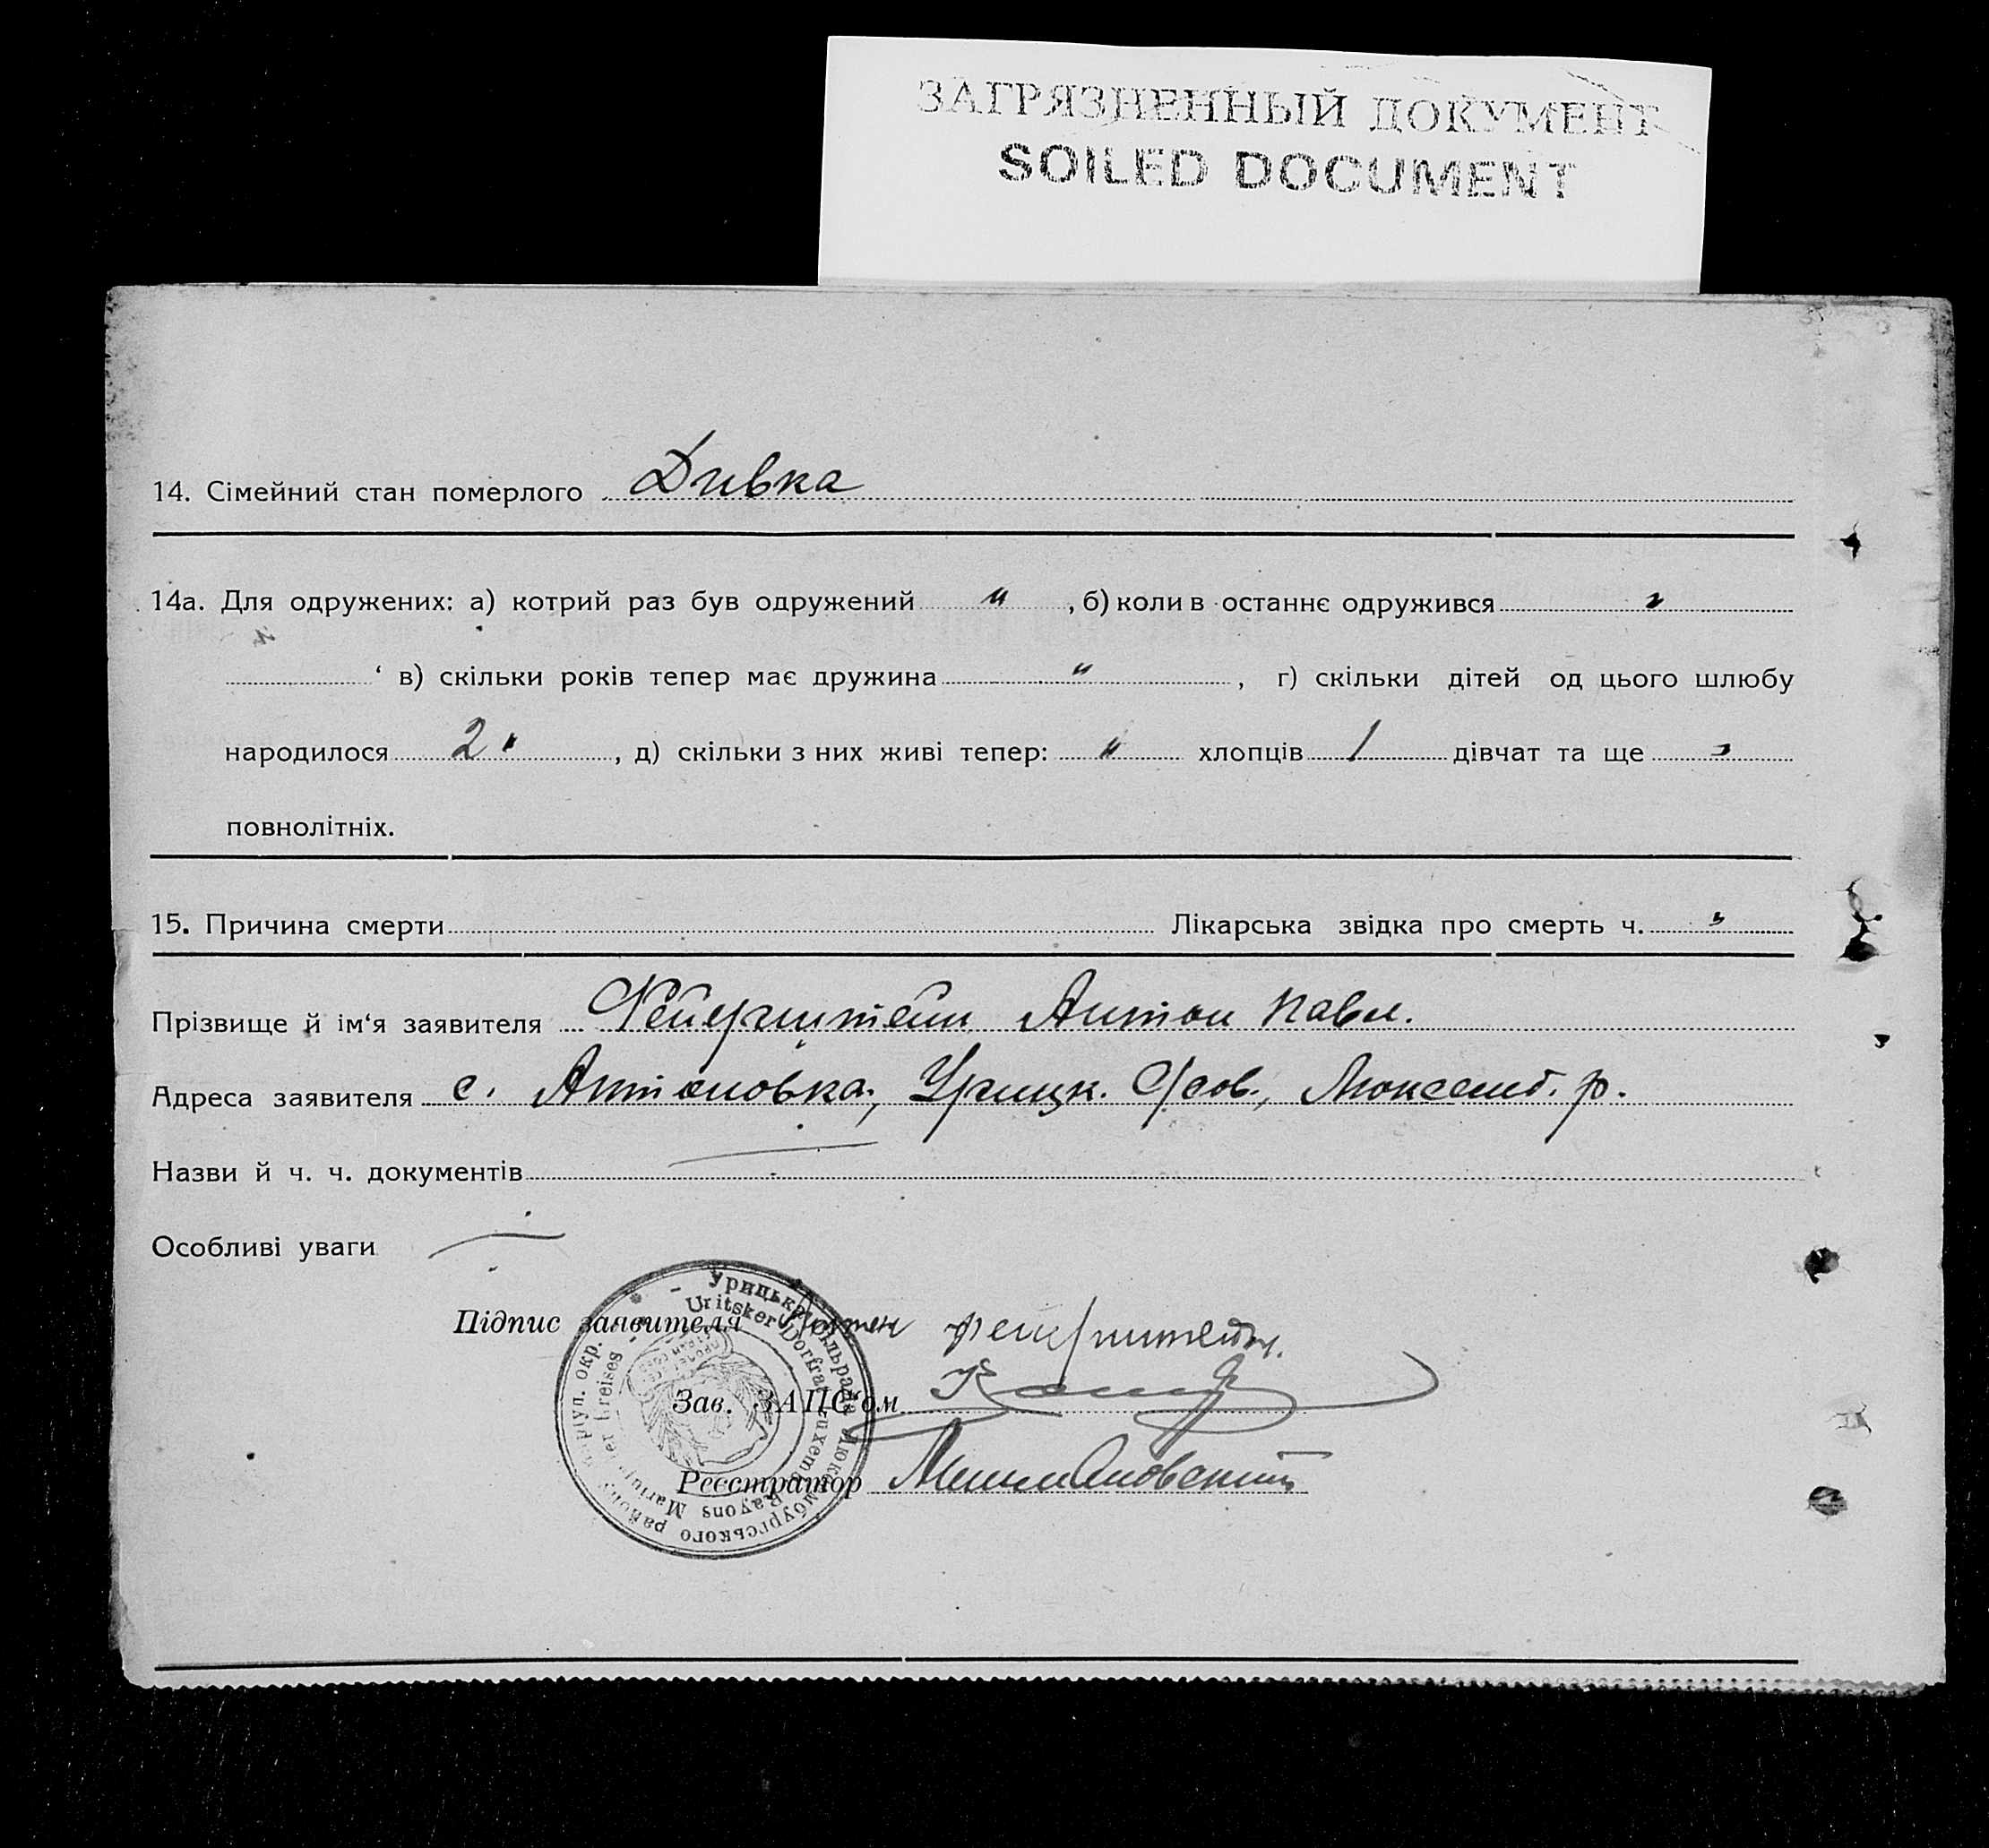 ЗАГРЯЗНЕННЫЙ ДОКУМЕНТ
SOILED DOCUMENT
14. Сімейний стан померлого Дивка
14а. Для одружених: а) котрий раз був одружений " , б) коли в останнє одружився "
" ‘ в) скільки років тепер має дружина " , г) скільки дітей од цього шлюбу
народилося 2 " , д) скільки з них живі тепер: " хлопців 1 дівчат та ще "
повнолітніх.
15. Причина смерти Лікарська звідка про смерть ч. "
Прізвище й ім‘я заявителя Фейерштейн Антон Павл.
Адреса заявителя с. Антоновка, Урицк. С/сов., Люксемб. р.
Назви й ч. ч. документів —
Особливі уваги —
Підпис заявителя Фейерштейн.
Зав. ЗАПС'ом
Реєстратор
Урицька сільрада Люксембургського району Маріуп. окр.
Uritsker Dorfrat Luxemb. Rayons Mariupoler Kreises